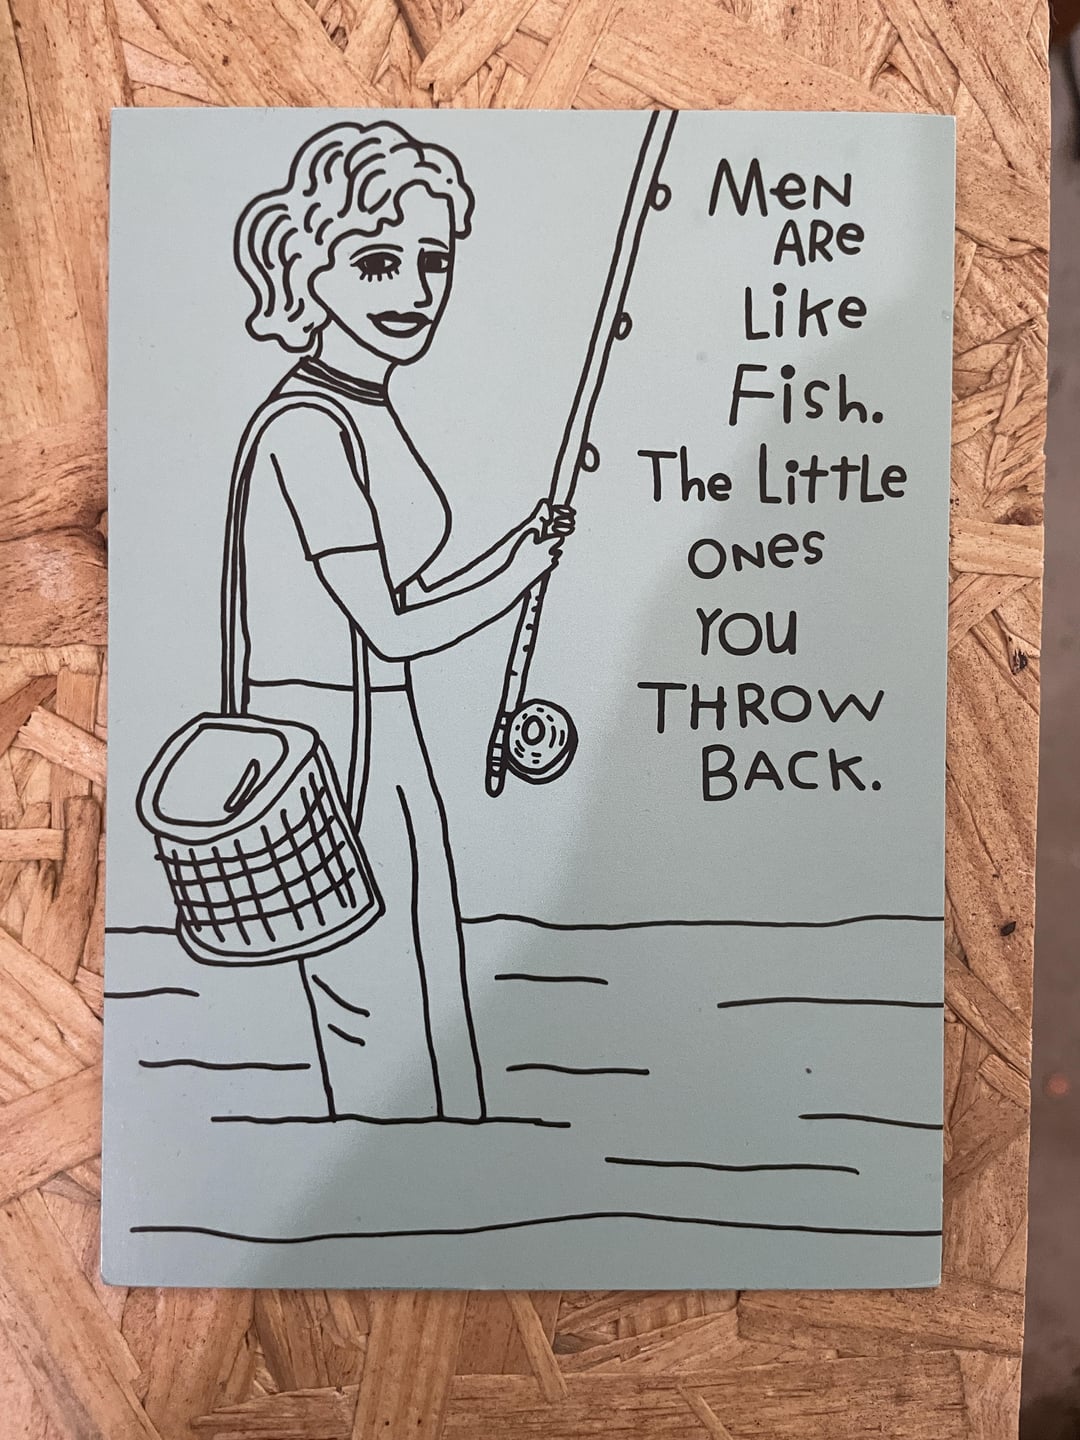 MeN
ARe
Like
Fish.
The LittLe
ONes
YOU
THROW
BACK.